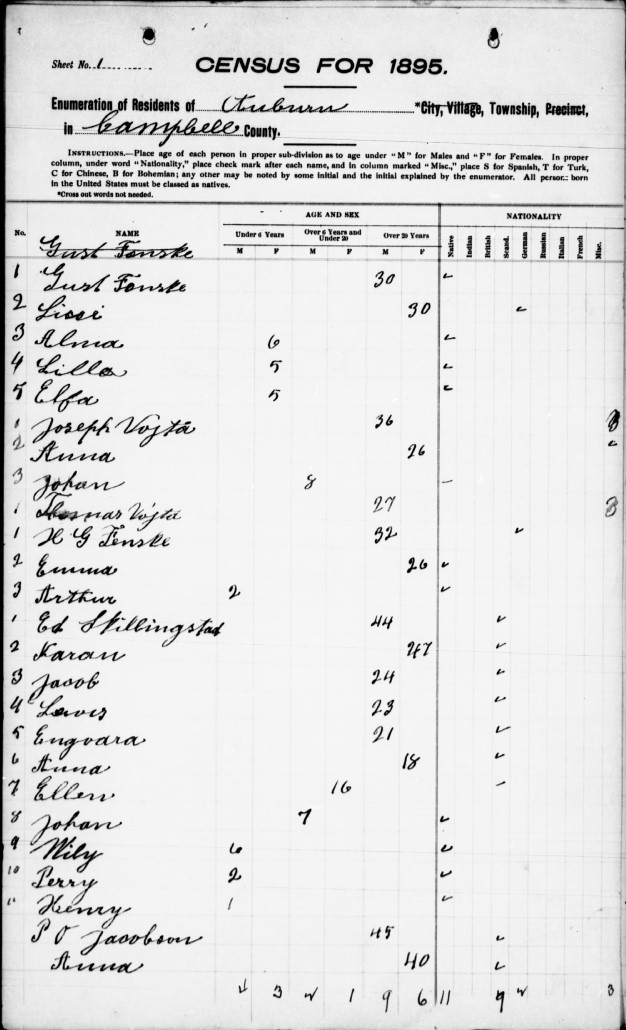 Sheet No. 1
CENSUS FOR 1895.
Enumeration of Residents of Auburn *City, Village, Township, Precinct,
in Campbell County.
INSTRUCTIONS.—Place age of each person in proper sub-division as to age under "M" for Males and "F" for Females. In proper
column, under word "Nationality," place check mark after each name, and in column marked "Misc.," place S for Spanish, T for Turk,
C for Chinese, B for Bohemian; any other may be noted by some initial and the initial explained by the enumerator. All persons born
in the United States must be classed as natives.
*Cross out words not needed.
AGE AND SEX NATIONALITY
No. NAME Under 6 Years Over 6 Years and Under 20 Over 20 Years Native Indian British Scand. German Russian Italian French Misc.
M F M F M F
Gust Fenske
1 Gust Fenske 30 ✓
2 Lissi 30 ✓
3 Alma 6 ✓
4 Lilla 5 ✓
5 Elfa 5 ✓
1 Joseph Vojta 36 B
2 Anna 26 ✓
3 Johan 8 –
1 Thomas Vojta 27 B
1 H G Fenske 32 ✓
2 Emma 26 ✓
3 Arthur 2 ✓
1 Ed Skillingstad 44 ✓
2 Karan 47 ✓
3 Jacob 24 ✓
4 Lewis 23 ✓
5 Engvara 21 ✓
6 Anna 18 ✓
7 Ellen 16 ✓
8 Johan 7 ✓
9 Wily 6 ✓
10 Perry 2 ✓
11 Henry 1 ✓
P O Jacobson 45 ✓
Anna 40 ✓
3 1 9 6 11 9 2 3